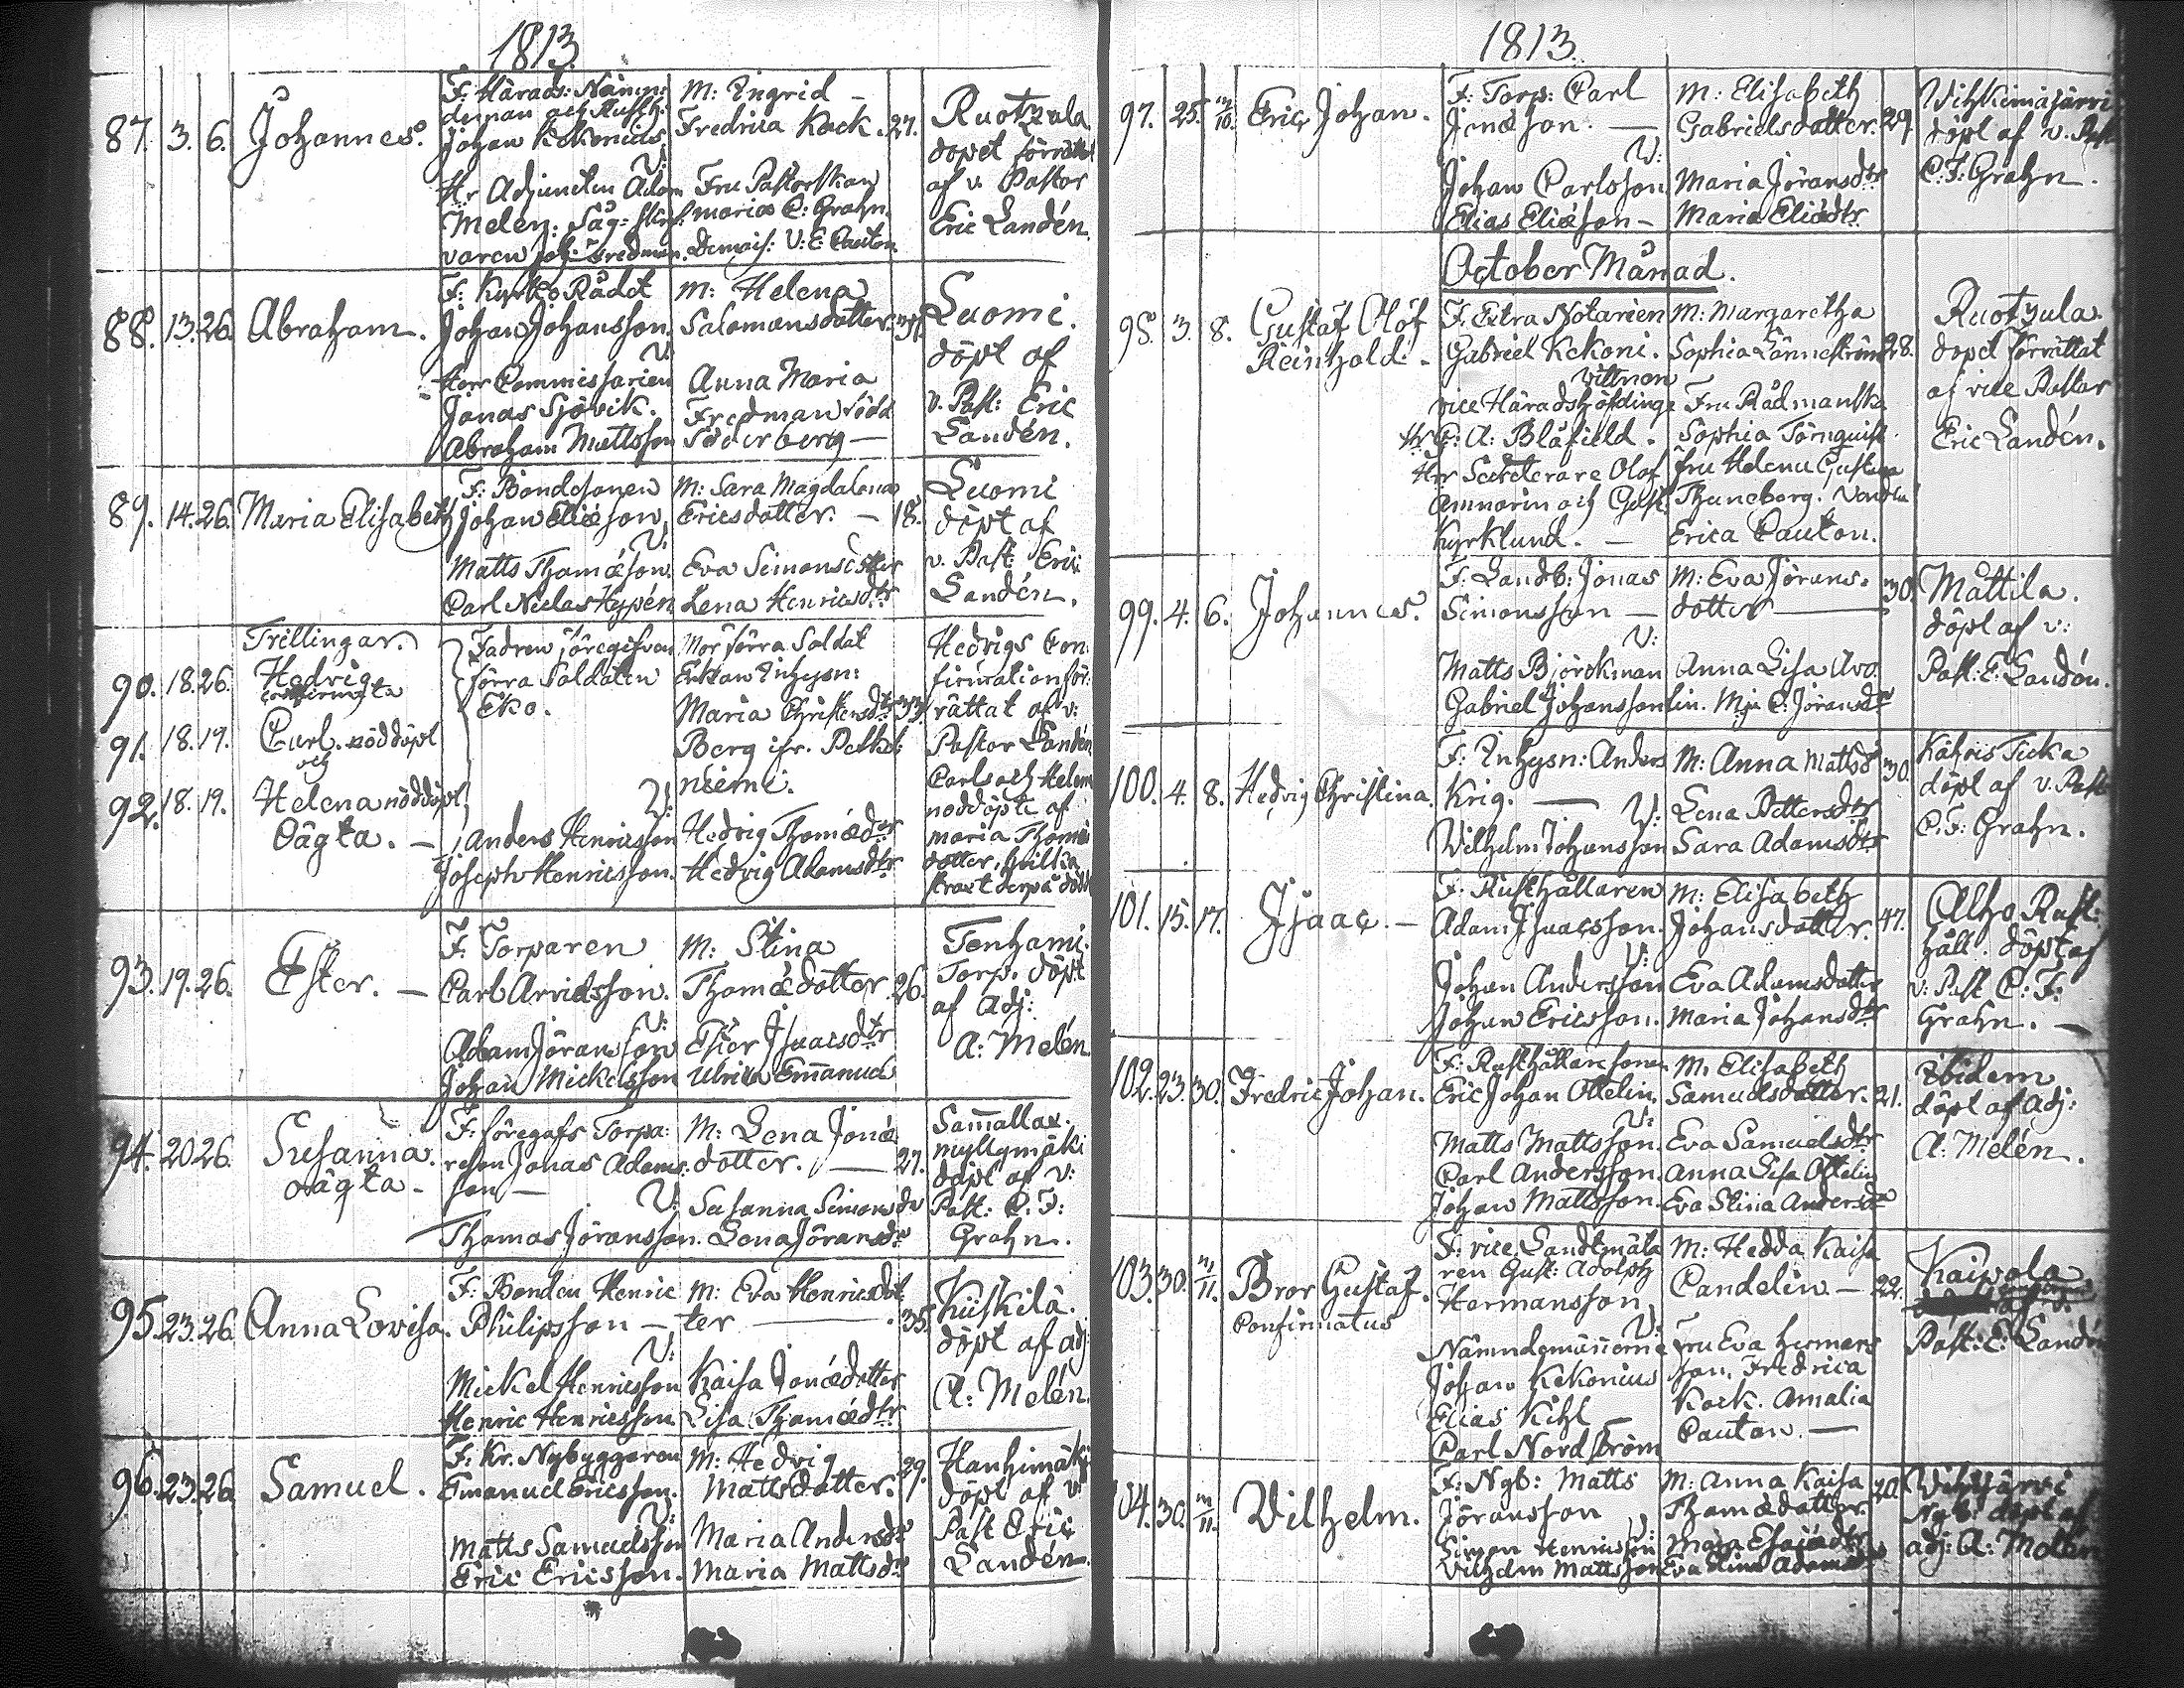 1813.
87. 3. 6. Johannes.
F: Härads: Nämn:
deman och Rusth:
Johan Kekonius.
V:
Hr Adjuncten Adam
Melen: Såg: Skrif:
varen Joh: Fredman.
M: Ingrid –
Fredrica Kock. 27.
Fru Pastorskan
Maria C: Grahn.
Demois: U: E: Cauton.
Ruotzula
dopet förrättat
af v. Pastor
Eric Landén.
88. 13. 26. Abraham.
F: Kyrko Rådet
Johan Johansson.
V:
Herr Commissarien
Jonas Sjövik.
Abraham Mattsson
M: Helena
Salomonsdotter.
Anna Maria
Fredman född
Söderberg —
Luomi.
döpt af
v. Past: Eric
Landén.
89. 14. 26. Maria Elisabeth
F: Bondesonen
Johan Eliæson
V:
Matts Thomæson.
Carl Niclas Hypén
M: Sara Magdalena
Ericsdotter. — 18.
Eva Simonsdotter
Lena Henricsdtr
Luomi
döpt af
v. Past: Eric
Landén.
Trillingar.
90. 18. 26. Hedvig
confirmata
91. 18. 19. Carl. nöddöpt
och
92. 18. 19. Helena nöddöpt
Oägta. —
Fadren föregifven
förra Soldaten
Eko.
V:
Anders Henricsson
Joseph Henricsson.
Mor förra Soldat
Enkan Inhysn:
Maria Christersdtr 33.
Berg ifr. Pelkä:
niemi.
Hedvig Thomædtr
Hedvig Adamsdtr
Hedvigs Con:
firmation för:
rättat af v:
Pastor Landén
Carls och Helena
nöddöpte af
Maria Thomæ
dotter, hvilka
straxt derpå dödde
93. 19. 26. Ester. —
F: Torparen
Carl Arvidsson.
V:
Adam Jöransson
Johan Mickelsson
M: Stina
Thomædotter. 26.
Ester Isaacsdtr
Ulrica Emanuels
Tenhami.
Torp. döpt
af Adj:
A: Melén
94. 20 26. Susanna.
oägta –
F: föregafs Torpa:
reson Jonas Adams:
son —
V:
Thomas Jöransson.
M: Lena Jonæ
dotter. — 27.
Susanna Simonsdr
Lena Jöransdr
Sammallax.
myllymäki
döpt af v:
Past: C. F:
Grahn.
95. 23. 26. Anna Lovisa.
F: Bonden Henric
Philipsson —
V:
Mickel Henricsson
Henric Henricsson.
M: Eva Henricsdot
ter — 35.
Kaisa Jonædotter
Lisa Thomædtr
Kiiskilä.
döpt af adj
A: Melén.
96. 23. 26. Samuel.
F: Kr. Nybyggaren
Emanuel Ericsson.
V:
Matts Samuelsson
Eric Ericsson.
M: Hedvig
Mattsdotter. 29.
Maria Andersdr
Maria Mattsdr
Hanhimäki
döpt af v
Past Eric
Landén.
1813.
97. 25. m/10. Eric Johan.
F: Torp: Carl
Jonæson. —
V:
Johan Carlsson
Elias Eliæson —
M: Elisabeth
Gabrielsdotter. 29.
Maria Jöransdtr
Maria Eliædtr
Vihkimäjärvi
döpt af v. Past
C: F: Grahn.
October Månad.
98. 3. 8. Gustaf Olof
Reinhold. –
F: Extra Notarien
Gabriel Kekoni.
Vittnen
vice Häradshöfdinge
Hr C: A: Blåfield.
Hr Secreterare Olof
Ammorin och Gust:
Kyrklund. —
M: Margaretha
Sophia Lönneström 28.
Fru Rådmanska
Sophia Törnquist.
Fru Helena Gustava
Thuneberg. Vendla
Erica Cauton.
Ruotzula.
dopet förrättat
af vice Pastor
Eric Landén.
99. 4. 6. Johannes.
F: Landb: Jonas
Simonsson —
V:
Matts Björkman
Gabriel Johansson
M: Eva Jörans.
dotter — 30.
Anna Lisa Avo
lin. Mja C: Jöransdr
Mattila.
döpt af v:
Past: E: Landén.
100. 4. 8. Hedvig Christina.
F: Inhysn: Anders
Krig. — V:
Wilhelm Johansson
M: Anna Mattsd 30.
Lena Pettersdtr
Sara Adamsdtr
döpt af v. Past
C: F: Grahn.
101. 15. 17. Isaac. —
F: Rusthållaren
Adam Isaacsson.
V:
Johan Andersson
Johan Ericsson.
M: Elisabeth
Johansdotter. 47.
Eva Adamsdotter
Maria Johansdtr
Alho Rust:
håll. döpt af
v: Past C: F:
Grahn. —
102. 23. 30. Fredric Johan.
F: Rusthållaresonen
Eric Johan Ottelin.
V:
Matts Mattsson.
Carl Andersson.
Johan Mattsson.
M: Elisabeth
Samuelsdotter. 21.
Eva Samuelsdtr
Anna Lisa Ottelin
Eva Stina Andersdr
Ibidem
döpt af Adj:
A: Melén.
103. 30. m/11. Bror Gustaf.
Confirmatus
F: vice Landtmäta
ren Gust: Adolph
Hermansson
V:
Nämndemännerne
Johan Kekonius
Elias Kihl —
Carl Nordström
M: Hedda Kaisa
Candelin — 22.
Fru Eva Hermans
son, Fredrica
Kock. Amalia
Cautan. —
Kaipola
Past: E: Landén
104. 30. m/11. Vilhelm.
F: Nyb: Matts
Jöransson
V:
Simon Henricsson
Vilhelm Mattsson
M: Anna Kaisa
Thomædotter. 20.
Maja Esaiædtr
Eva Stina Adamsdr
Vihijärvi
Nyb: döpt af
adj: A: Melén